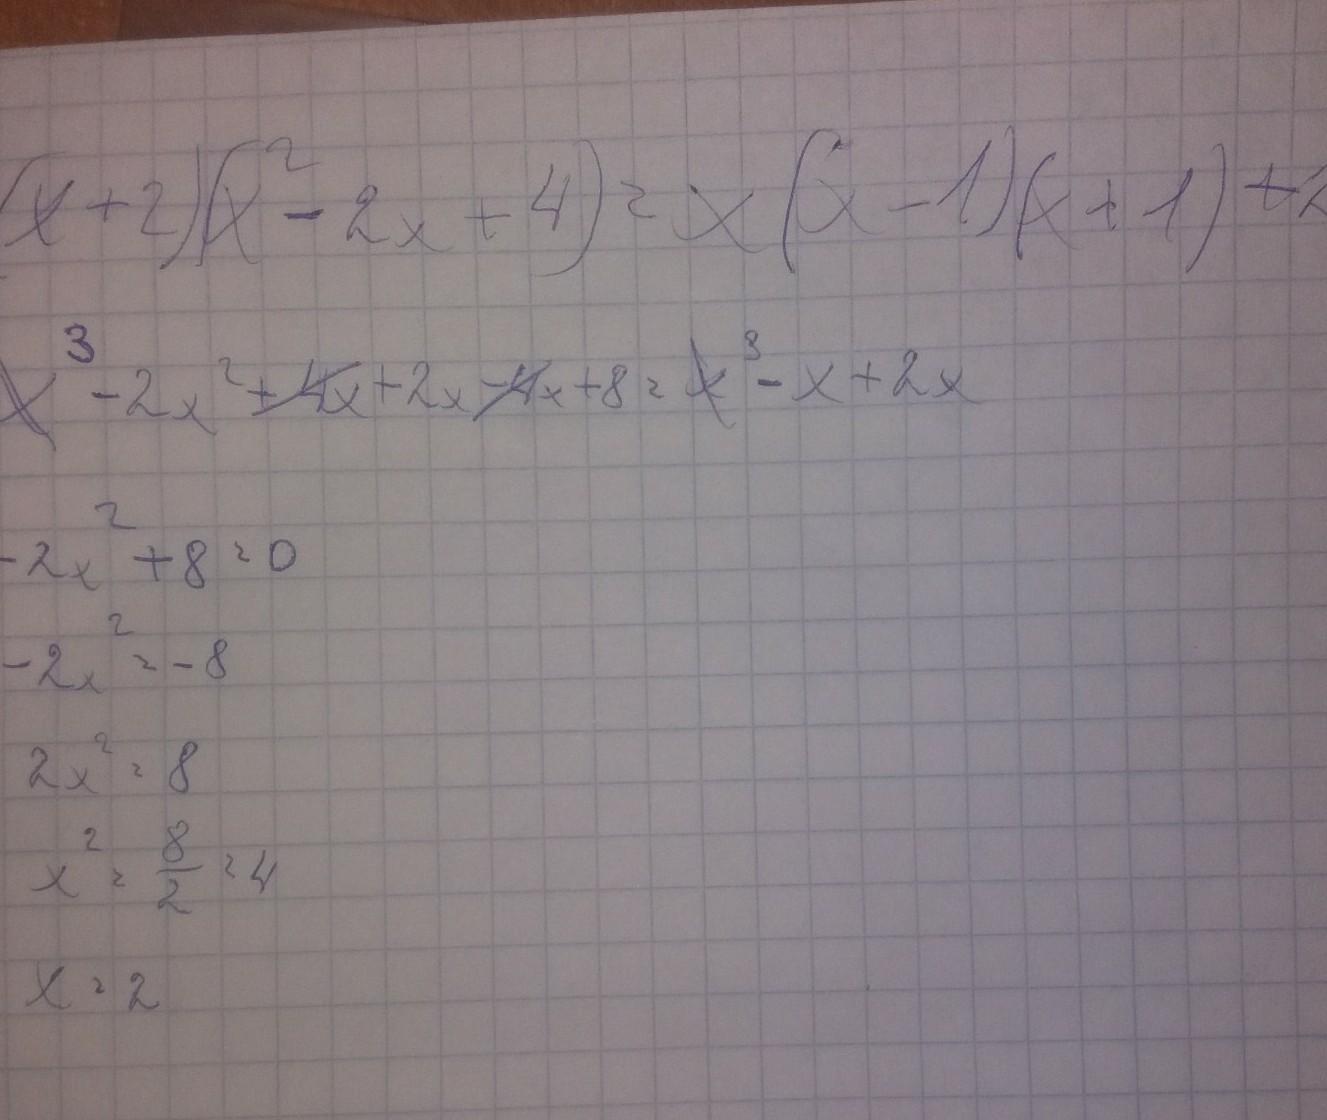 (x+2)(x²-2x+4)=x(x-1)(x+1)+2
x³-2x²+4x+2x-4x+8=x³-x+2x
-2x²+8=0
-2x²=-8
2x²=8
x²=8/2=4
x=2